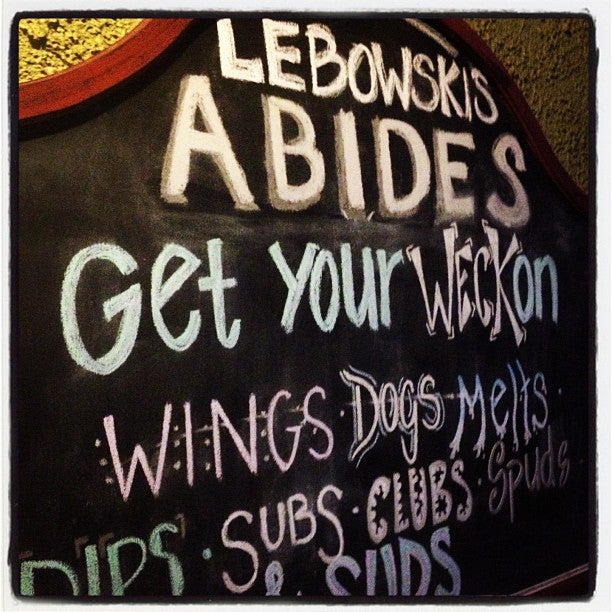 LEBOWSKI'S
ABIDES
Get your WECK on
WINGS · DOGS · Melts ·
DIPS · SUBS · CLUBS · Spuds
& SUDS